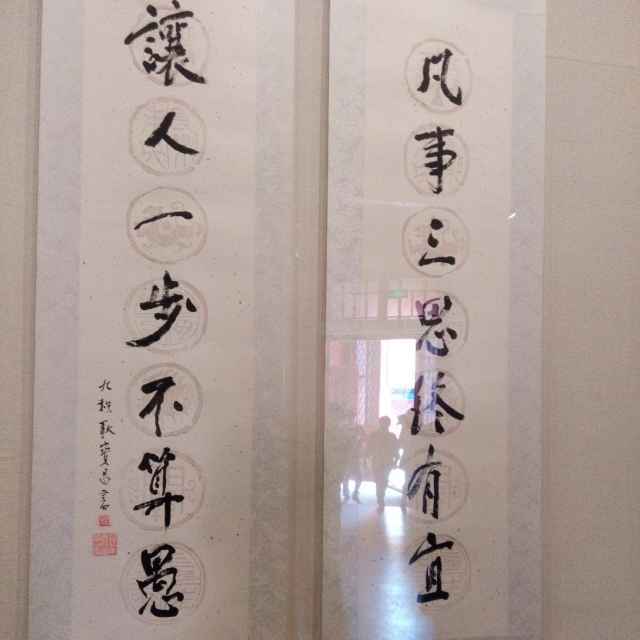 凡事三思终有宜
讓人一步不算愚